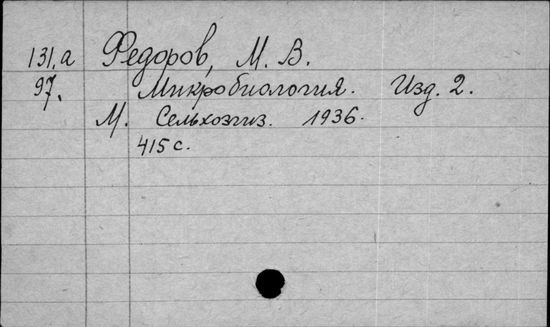 131.а Федоров, М. В.
97. Микробиология. Изд. 2.
М. Сельхозгиз. 1936.
415 с.